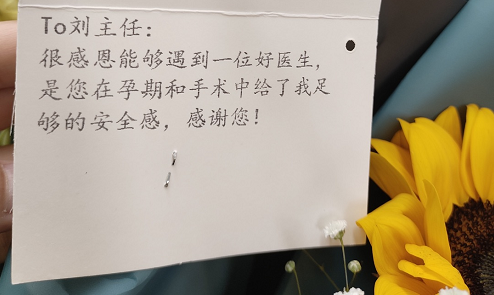 To刘主任：
很感恩能够遇到一位好医生，
是您在孕期和手术中给了我足
够的安全感，感谢您！